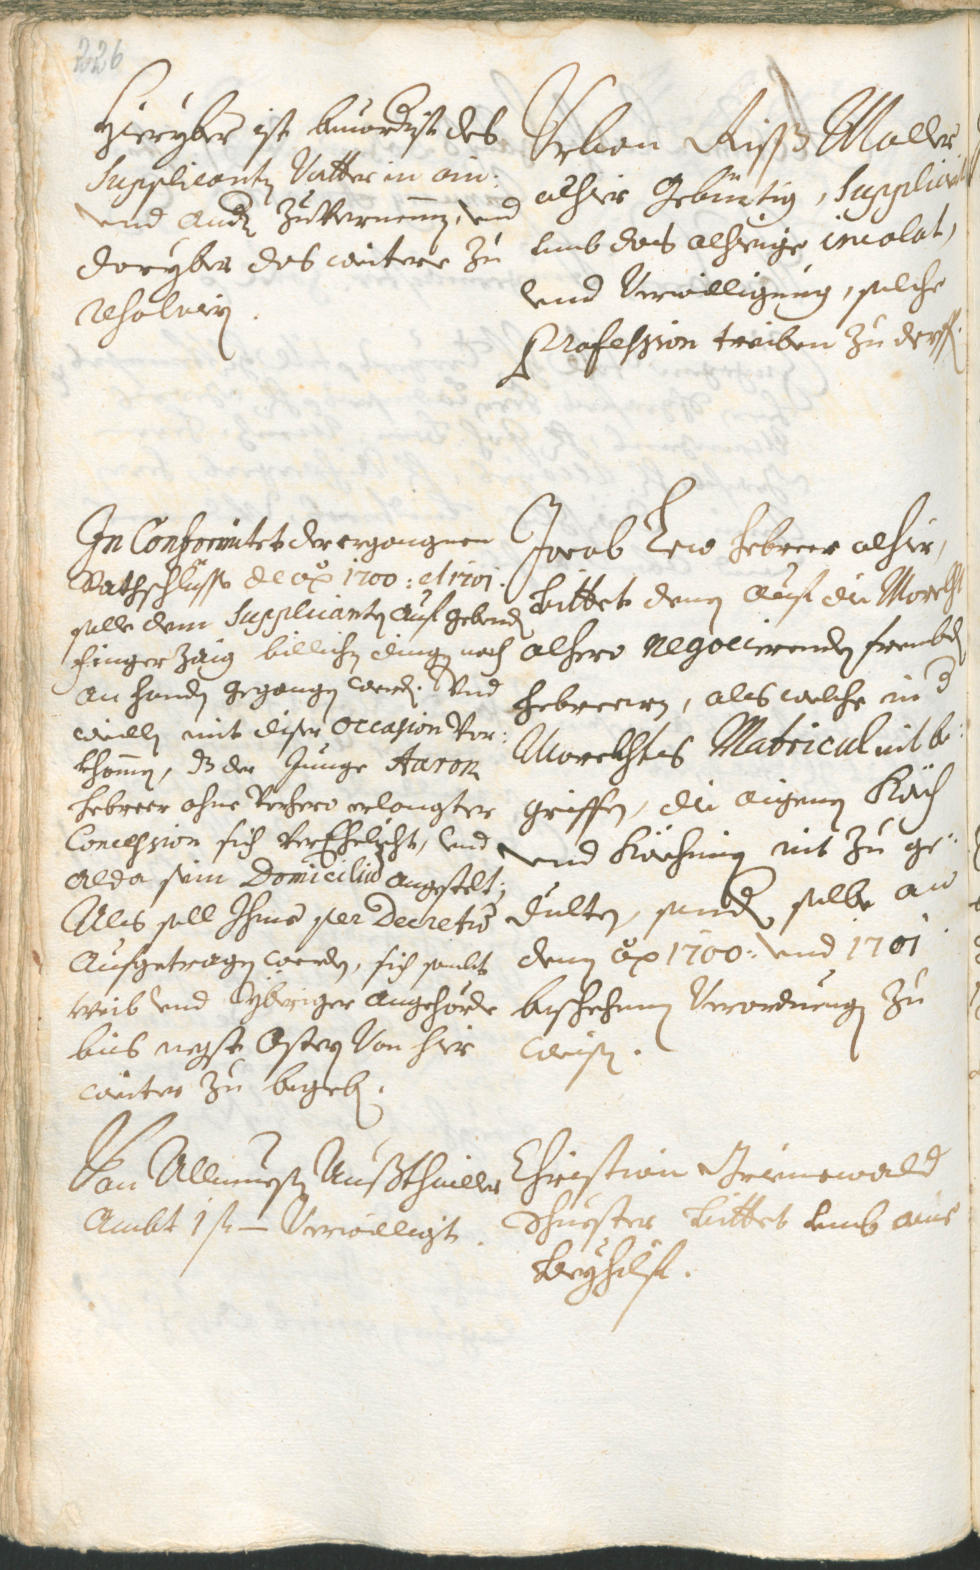 226
Hieryber ist bevordrist des
Supplicanten Vatter in ein:
und andern zuvernemen, und
daryber das weitere zu
resolvirn.
Urban Riss Maller
alhier gebürtig, Supplicirt
umb das alhieige incolat,
und Verwilligung, solche
Profession treiben zu derffen.
In Conformitet der ergangnen
Rathschlüss de ao 1700: et 1701.
solle dem Supplicanten auf gebenden
fingerzaig billichen dingen nach
an handen gegangen werden. Und
weillen mit diser occasion vor:
khomen, dz der Junge Aaron
Hebreer ohne vorhero erlangter
Concession sich verEhelicht, und
alda sein Domicilium angestelt;
Als soll Ihme per Decretum
aufgetragen werden, sich sambt
weib und ybriger angehörde
bis negst Ostern von hier
weiter zu begeben.
Jacob Lew Hebreer alhier,
bittet denen auf die Märckht
alhero negocirenden frembden
Hebreern, als welche in der
Marckhts Matricul nit be:
griffen, die aigene Köch
und Köchinen nit zu ge:
dulten, sondern selbe an
denen ao 1700: und 1701
beschehenen Verordnungen zu
weisen.
Von Allmuesen Aussthailler
Ambt 1 fl — Verwilligt.
Christian Grienewald
Schuester bittet umb eine
beyhilf.